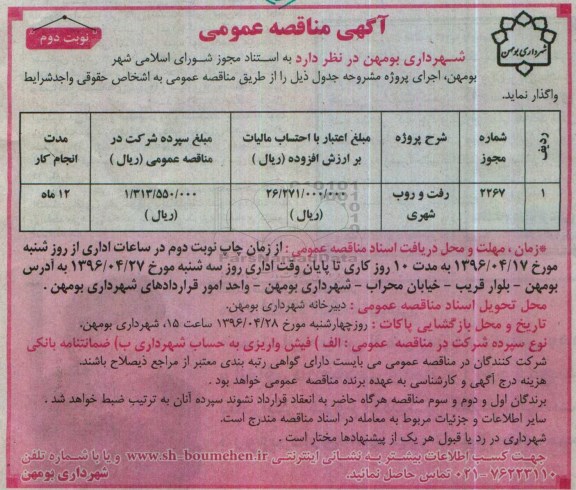 آگهی مناقصه عمومی
نوبت دوم
شهرداری بومهن
شهرداری بومهن در نظر دارد به استناد مجوز شورای اسلامی شهر
بومهن، اجرای پروژه مشروحه جدول ذیل را از طریق مناقصه عمومی به اشخاص حقوقی واجدشرایط
واگذار نماید.
ردیف | شماره مجوز | شرح پروژه | مبلغ اعتبار با احتساب مالیات بر ارزش افزوده (ریال) | مبلغ سپرده شرکت در مناقصه عمومی (ریال) | مدت انجام کار
۱ | ۲۲۶۷ | رفت و روب شهری | ۲۶/۲۷۱/۰۰۰/۰۰۰ (ریال) | ۱/۳۱۳/۵۵۰/۰۰۰ (ریال) | ۱۲ ماه
*زمان ، مهلت و محل دریافت اسناد مناقصه عمومی : از زمان چاپ نوبت دوم در ساعات اداری از روز شنبه
مورخ ۱۳۹۶/۰۴/۱۷ به مدت ۱۰ روز کاری تا پایان وقت اداری روز سه شنبه مورخ ۱۳۹۶/۰۴/۲۷ به آدرس
بومهن - بلوار قریب - خیابان محراب - شهرداری بومهن - واحد امور قراردادهای شهرداری بومهن .
محل تحویل اسناد مناقصه عمومی : دبیرخانه شهرداری بومهن.
تاریخ و محل بازگشایی پاکات : روزچهارشنبه مورخ ۱۳۹۶/۰۴/۲۸ ساعت ۱۵، شهرداری بومهن.
نوع سپرده شرکت در مناقصه عمومی : الف ) فیش واریزی به حساب شهرداری ب) ضمانتنامه بانکی
شرکت کنندگان در مناقصه عمومی می بایست دارای گواهی رتبه بندی معتبر از مراجع ذیصلاح باشند.
هزینه درج آگهی و کارشناسی به عهده برنده مناقصه عمومی خواهد بود .
برندگان اول و دوم و سوم مناقصه هرگاه حاضر به انعقاد قرارداد نشوند سپرده آنان به ترتیب ضبط خواهد شد .
سایر اطلاعات و جزئیات مربوط به معامله در اسناد مناقصه مندرج است.
شهرداری در رد یا قبول هر یک از پیشنهادها مختار است .
جهت کسب اطلاعات بیشتر به نشانی اینترنتی www.sh-boumehen.ir و یا با شماره تلفن
۰۲۱-۷۶۲۲۳۱۱۰ تماس حاصل نمائید.
شهرداری بومهن